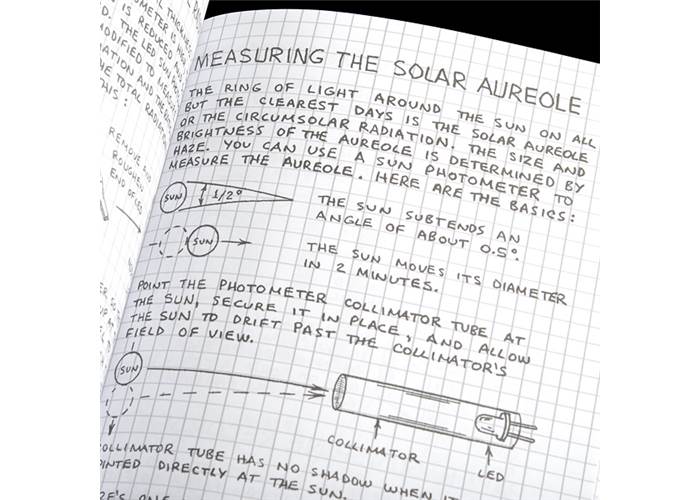 THICKNESS
OMETER IS HIG
IS REDUCED
D. THE LED SUN
MODIFIED TO MEAS
ATION AND THE
HE TOTAL RADIA
THIS:
REMOVE AND
ROUGHEN
END OF
MEASURING THE SOLAR AUREOLE
THE RING OF LIGHT AROUND THE SUN ON ALL
BUT THE CLEAREST DAYS IS THE SOLAR AUREOLE
OR THE CIRCUMSOLAR RADIATION. THE SIZE AND
BRIGHTNESS OF THE AUREOLE IS DETERMINED BY
HAZE. YOU CAN USE A SUN PHOTOMETER TO
MEASURE THE AUREOLE. HERE ARE THE BASICS:
SUN 1/2°
THE SUN SUBTENDS AN
ANGLE OF ABOUT 0.5°.
SUN
THE SUN MOVES ITS DIAMETER
IN 2 MINUTES.
POINT THE PHOTOMETER COLLIMATOR TUBE AT
THE SUN, SECURE IT IN PLACE, AND ALLOW
THE SUN TO DRIFT PAST THE COLLIMATOR'S
FIELD OF VIEW.
SUN
COLLIMATOR
LED
COLLIMATOR TUBE HAS NO SHADOW WHEN IT
POINTED DIRECTLY AT THE SUN.